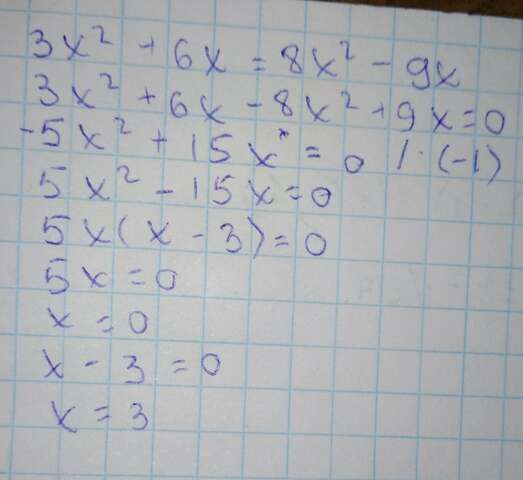 3x² + 6x = 8x² - 9x
3x² + 6x - 8x² + 9x = 0
-5x² + 15x = 0 / · (-1)
5x² - 15x = 0
5x(x - 3) = 0
5x = 0
x = 0
x - 3 = 0
x = 3